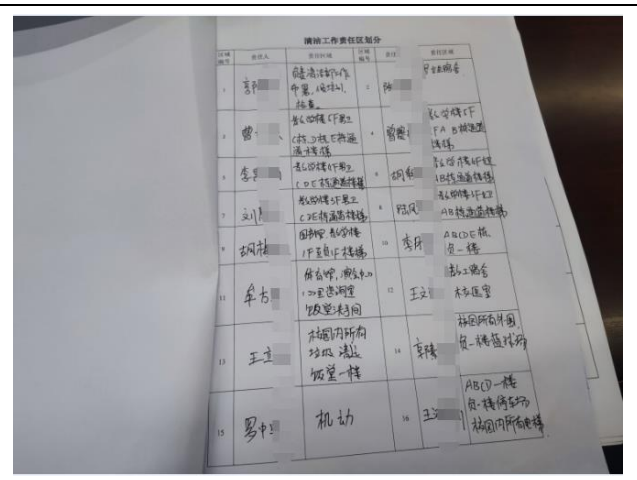 清洁工作责任区划分
区域编号 责任人 责任区域 区域编号 责任 责任区域
1 郭
负责清洁部工作
布置、
检查。
2 陈 宿舍
3 曾 教学楼 F男卫
C栋、D栋、E栋通
道楼梯
4 曾 教学楼5F
FA B栋通道
楼梯
5 李 教学楼 F男卫
CDE栋通道楼梯
6 胡 教学楼4F女
AB栋通道楼梯
7 刘 教学楼3F男卫
CDE栋通道楼梯
8 陆 教学楼 F女卫
AB栋通道楼梯
9 胡 图书馆 教学楼
1F至负1F楼梯
10 李 ABCDE栋
负一楼
11 牟 体育馆,演
咨询室
饭堂洗手间
12 王 教工宿舍
校医室
13 王 校园内所有
垃圾 清运
饭堂一楼
14 郭 校园所有外围
负一楼篮球场
15 罗 机动
16 王 一楼
负一楼停车场
校园内所有电梯